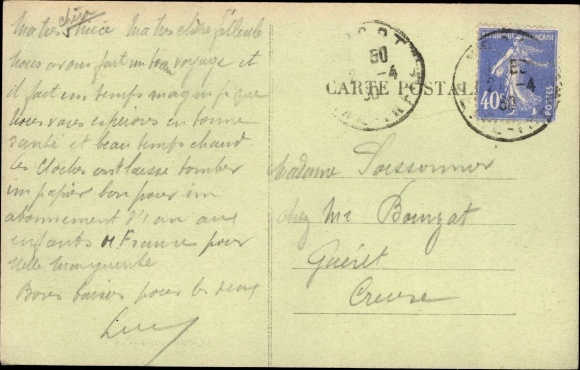 chère
Ma très Nièce Ma très chère filleule
Nous avons fait un bon voyage et
il fait un temps magnifique
Nous vous espérons en bonne
santé et beau temps chaud
les cloches ont laissé tomber
un papier bon pour un
abonnement d'1 an aux
enfants de France pour
Melle Marguerite
Bons baisers pour les deux
CARTE POSTALE
RÉPUBLIQUE FRANÇAISE
40c
POSTES
Madame Soissonnier
chez Mr Bourzat
Guéret
Creuse